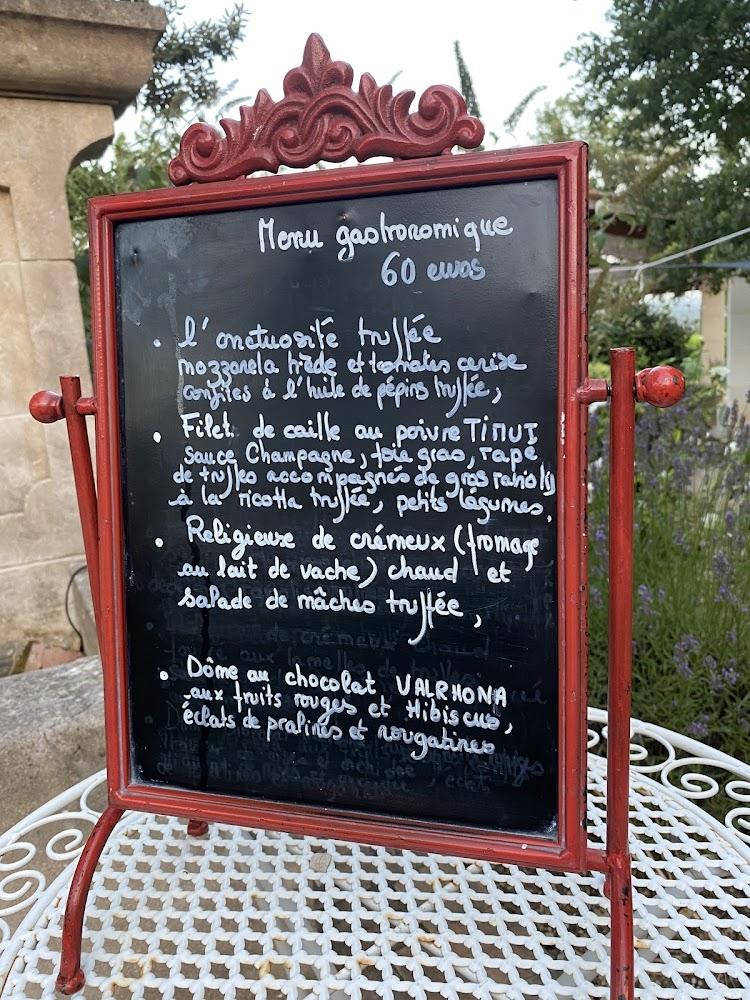 Menu gastronomique
60 euros
• l'onctuosité truffée
mozzarela tiède et tomates cerise
confites à l'huile de pépins truffée,
• Filet de caille au poivre TIMUT
sauce Champagne, foie gras, rapé
de truffes accompagnés de gros raviolis
à la ricotta truffée, petits légumes.
• Religieuse de crémeux (fromage
au lait de vache) chaud et
salade de mâches truffée,
• Dôme au chocolat VALRHONA
aux fruits rouges et Hibiscus,
éclats de pralines et nougatines